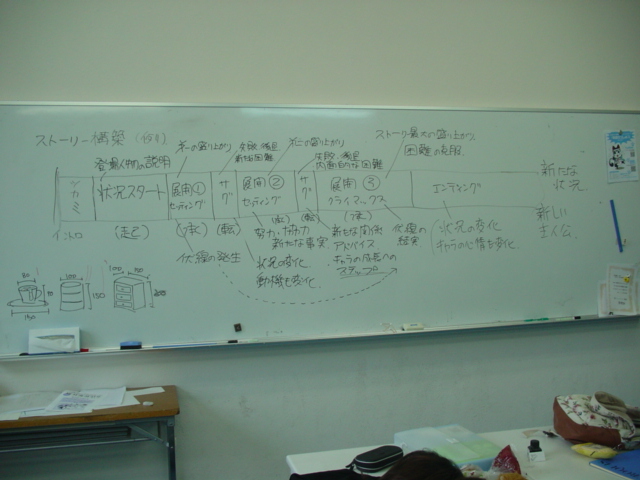 ストーリー構築(例)
登場人物の説明
第一の盛り上がり
失敗・後退
新たな困難
第二の盛り上がり
失敗・後退
内面的な困難
ストーリー最大の盛り上がり
困難の克服
ツカミ
状況スタート
展開①
セッティング
サゲ
展開②
セッティング
サゲ
展開③
クライマックス
エンディング
新たな
状況
新しい
主人公
イントロ
(起)
(承)
(転)
(承)
(転)
(承)
伏線の発生
努力・協力
新たな事実
状況の変化
動機も変化
新たな関係
アドバイス
キャラの成長への
ステップ
伏線の
結実
状況の変化
キャラの心情も変化
80
150
100
150
100